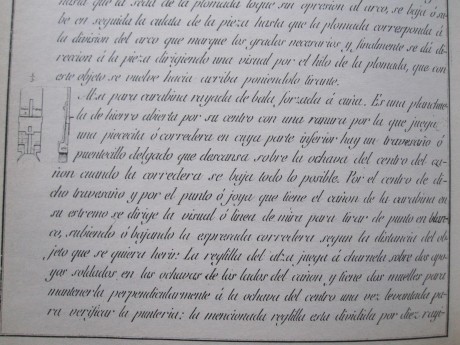 hasta que la seda de la plomada toque sin opresion al arco, se baja ó su
be en seguida la culata de la pieza hasta que la plomada corresponda á
la division del arco que marque los grados necesarios y, finalmente se dá di-
reccion á la pieza dirigiendo una visual por el hilo de la plomada, que con
este objeto se vuelve hacia arriba poniendolo tirante.
Alza para carabina rayada de bala, forzada á cuña. Es una planchue
la de hierro abierta por su centro con una ranura por la que juega
una piececita ó corredera en cuya parte inferior hay un travesaño ó
puentecillo delgado que descansa sobre la ochava del centro del ca-
ñon cuando la corredera se baja todo lo posible. Por el centro de di-
cho travesaño y por el punto ó joya que tiene el cañon de la carabina en
su estremo se dirige la visual ó linea de mira para tirar de punto en blan-
co, subiendo ó bajando la espresada corredera segun la distancia del ob-
jeto que se quiera herir: La reglilla del alza juega á charnela sobre los apo-
yos soldados en las ochavas de los lados del cañon, y tiene dos muelles para
mantenerla perpendicularmente á la ochava del centro una vez levantada pa-
ra verificar la punteria: la mencionada reglilla esta dividida por diez rayo-